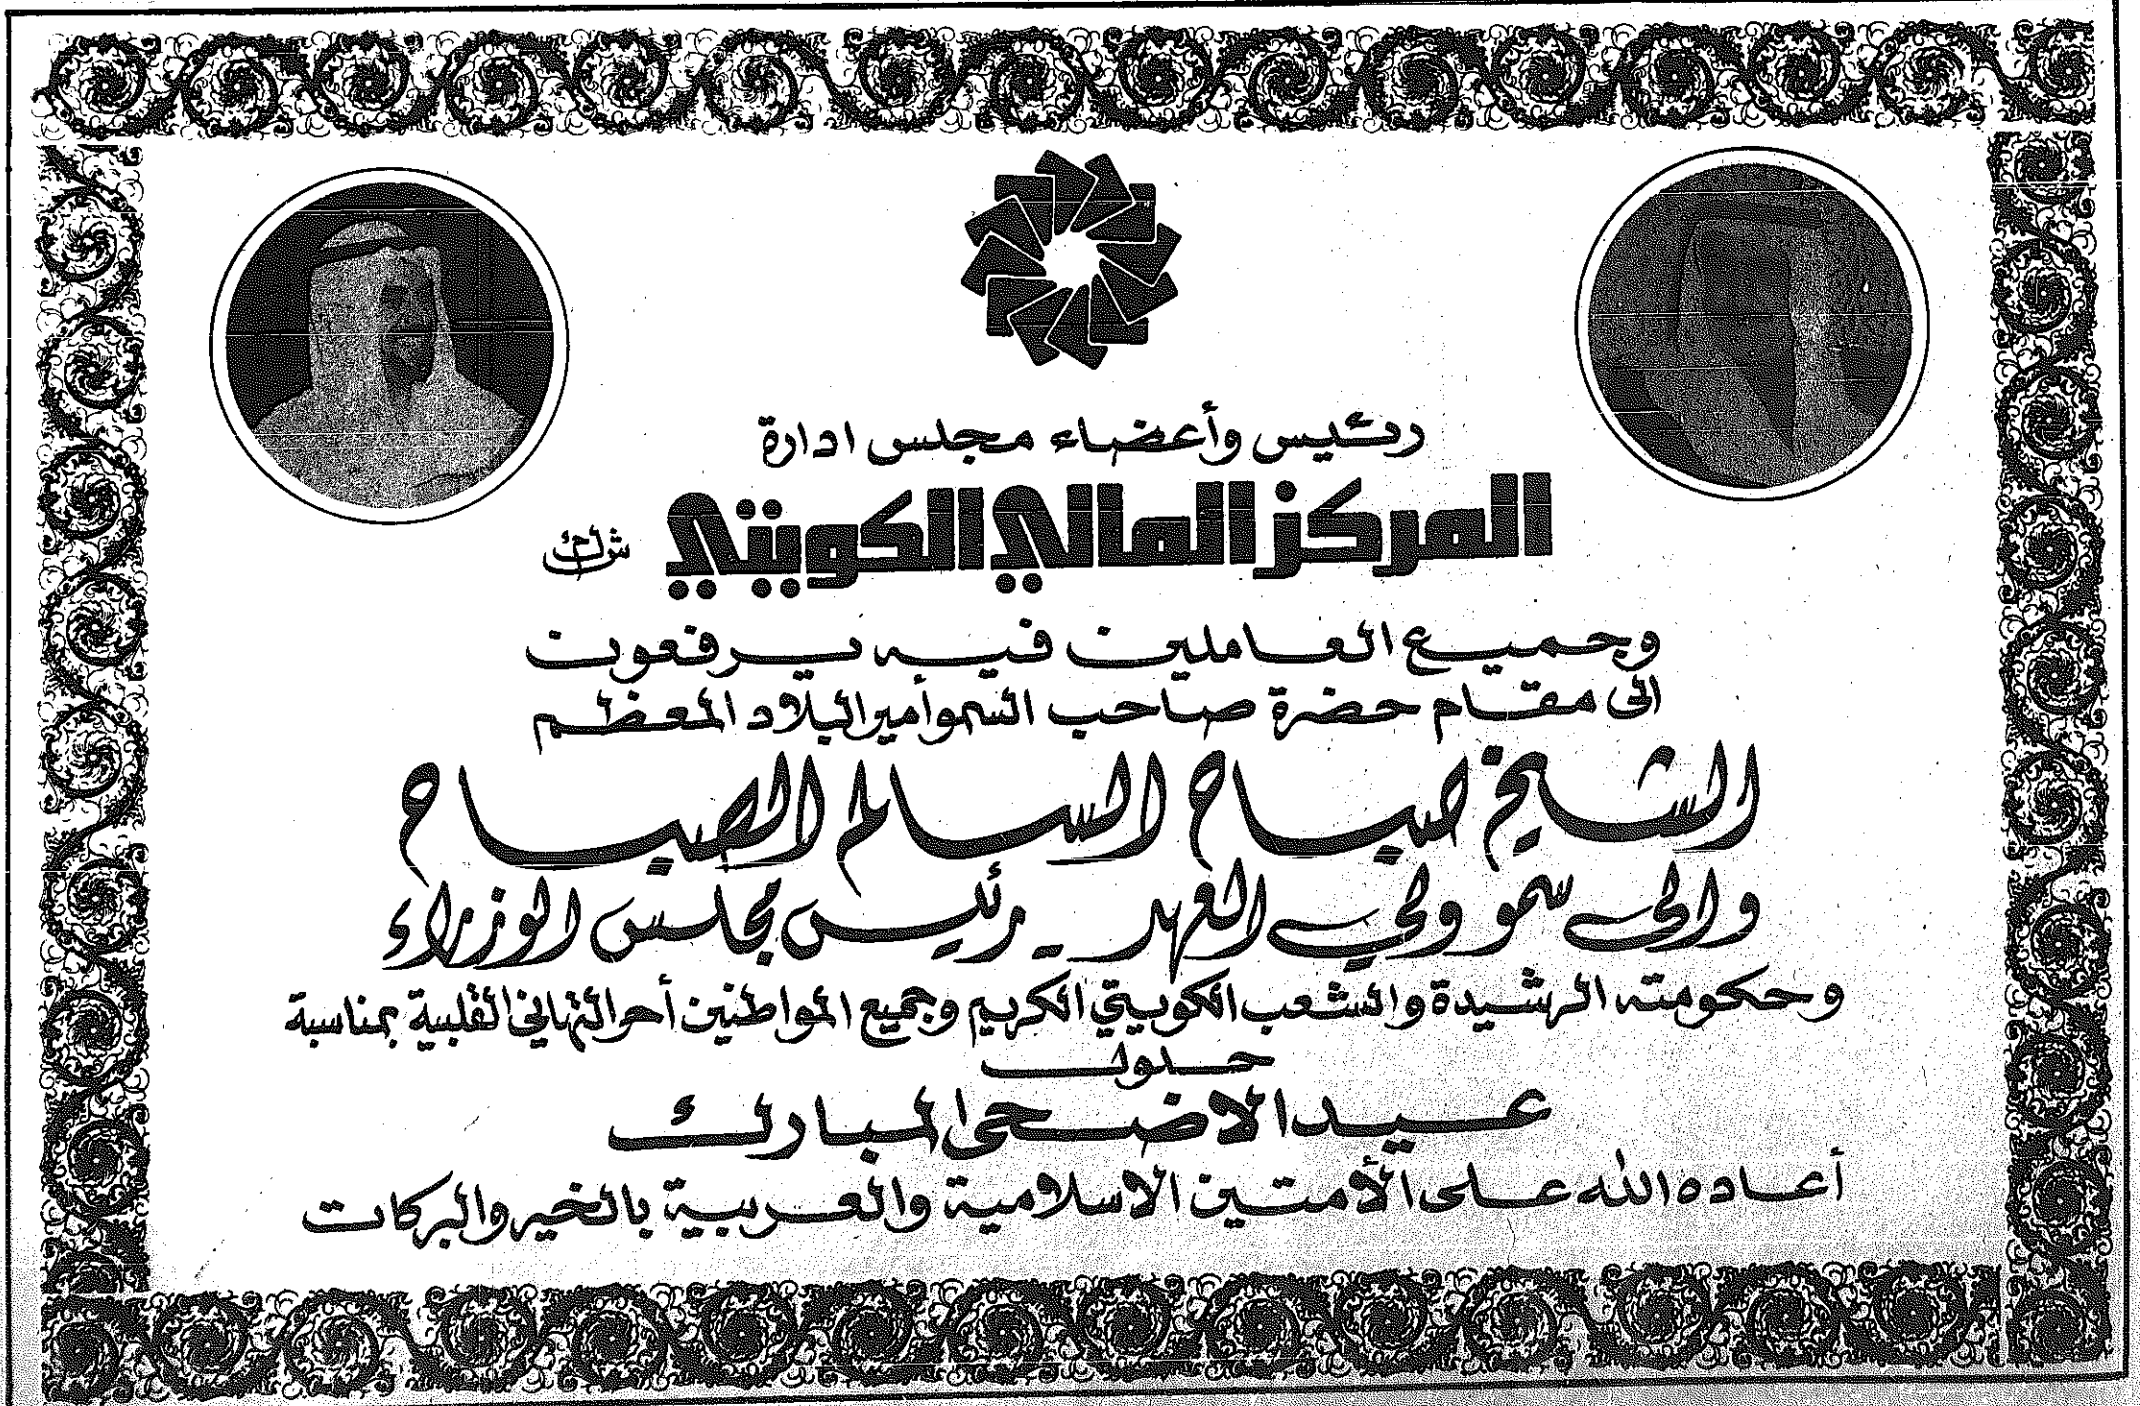 رئيس وأعضاء مجلس ادارة
المركز المالي الكويتي ش.م.ك
وجميع العاملين فيه يرفعون
الى مقام حضرة صاحب السمو أمير البلاد المعظم
الشيخ صباح السالم الصباح
والى سمو ولي العهد - رئيس مجلس الوزراء
وحكومته الرشيدة والشعب الكويتي الكريم وجميع المواطنين أحر التهاني القلبية بمناسبة
حلول
عيد الاضحى المبارك
أعاده الله على الأمتين الاسلامية والعربية بالخير والبركات